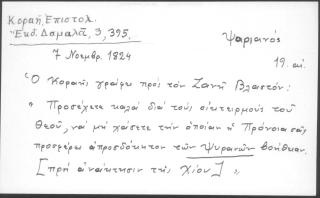 Κοραῆ, Ἐπιστολ.
Ἔκδ. Δαμαλᾶ, 3, 395.
Ψαριανός
7 Νοεμβρ. 1824
19. αἰ.
Ὁ Κοραῆς γράφει πρὸς τὸν Ζανῆ Βλαστόν:
" Προσέχετε καλὰ διὰ τοὺς οἰκτειρμοὺς τοῦ
Θεοῦ, νὰ μὴ χάσετε τὴν ὁποίαν ἡ Πρόνοια σᾶς
προσφέρει ἀπροσδόκητον τῶν Ψυριανῶν βοήθειαν.
[πρὸς ἀνάκτησιν τῆς Χίου] "